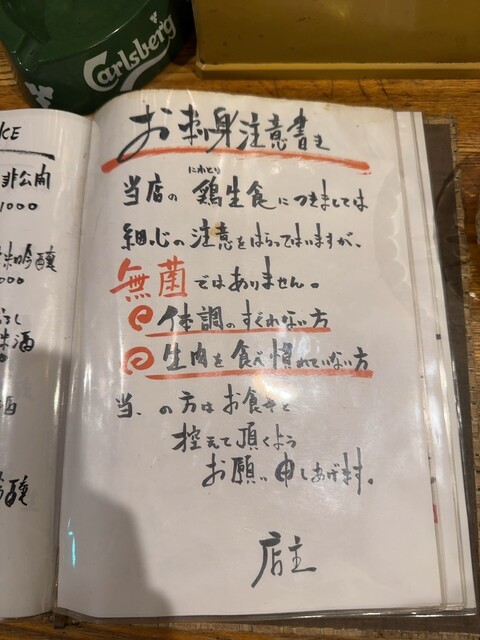 Carlsberg
ICE
非公開
1000
吟醸
000
酒
酒
吟醸
お刺身注意書き
当店の 鶏生食につきましては
にわとり
細心の注意をはらってはいますが、
無菌ではありません。
体調のすぐれない方
生肉を食べ慣れていない方
当、の方はお食事を
控えて頂くよう
お願い申しあげます。
店主